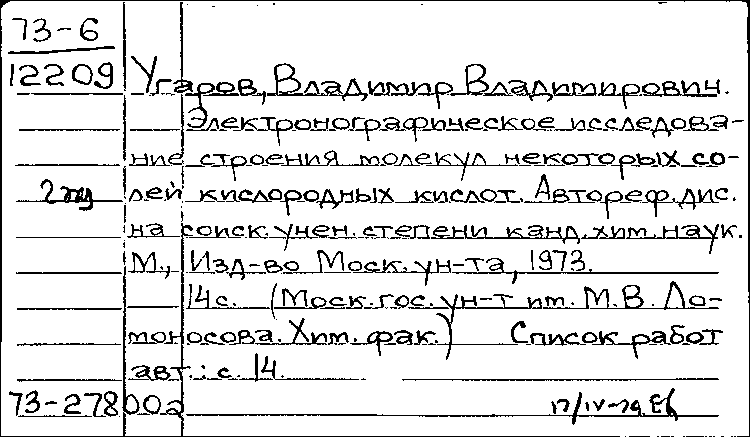 73-6
12209 Угаров, Владимир Владимирович.
Электронографическое исследова-
ние строения молекул некоторых со-
лей кислородных кислот. Автореф. дис.
на соиск. учен. степени канд. хим. наук.
М., Изд-во Моск. ун-та, 1973.
14 с. (Моск. гос. ун-т им. М.В. Ло-
моносова. Хим. фак.) Список работ
авт.: с. 14.
73-27800a